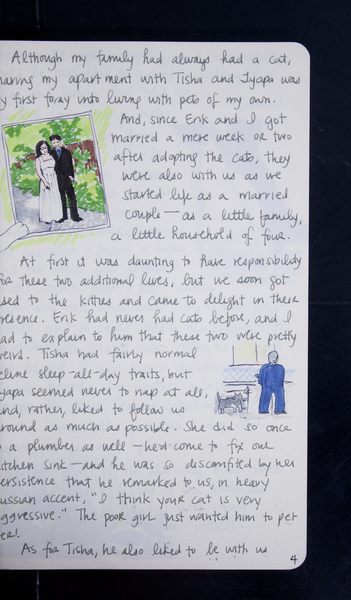 Although my family had always had a cat,
haring my apartment with Tisha and Tyapa was
y first foray into living with pets of my own.
And, since Erik and I got
married a mere week or two
after adopting the cats, they
were also with us as we
started life as a married
couple — as a little family,
a little household of four.
At first it was daunting to have responsibility
for these two additional lives, but we soon got
sed to the kitties and came to delight in their
resence. Erik had never had cats before, and I
ad to explain to him that these two were pretty
weird. Tisha had fairly normal
eline sleep-all-day traits, but
yapa seemed never to nap at all,
and, rather, liked to follow us
around as much as possible. She did so once
o a plumber as well — he'd come to fix our
itchen sink — and he was so discomfited by her
ersistence that he remarked to us, in heavy
ussian accent, "I think your cat is very
ggressive." The poor girl just wanted him to pet
er!
As for Tisha, he also liked to be with us
4